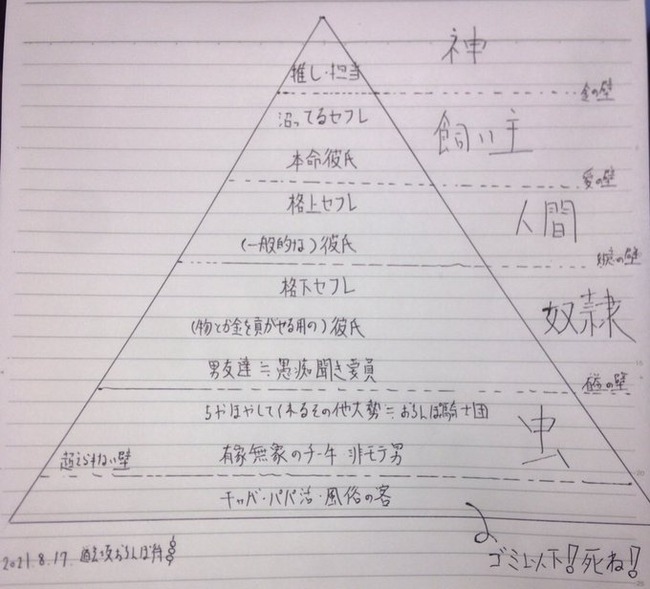 神
推し・担当
金の壁
沼ってるセフレ
飼い主
本命彼氏
愛の壁
格上セフレ
人間
(一般的な)彼氏
の壁
格下セフレ
奴隷
(物とか金を貢がせる用の)彼氏
男友達≒愚痴聞き要員
の壁
ちやほやしてくれるその他大勢≒おろんぽ騎士団
虫
超えられない壁
有象無象のチー牛 非モテ男
チッパ・パパ活・風俗の客
2021.8.17.
ゴミ以下!死ね!